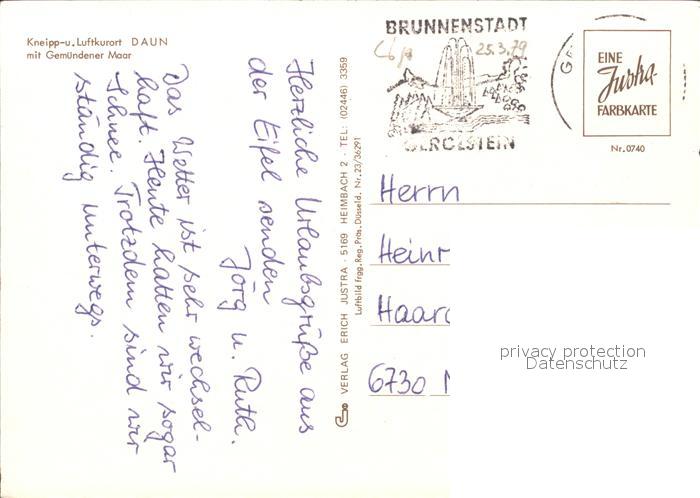 Kneipp-u. Luftkurort DAUN
mit Gemündener Maar
Herzliche Urlaubsgrüße aus
der Eifel senden
Jörg u. Ruth.
Das Wetter ist sehr wechsel-
haft. Heute hatten wir sogar
Schnee. Trotzdem sind wir
ständig unterwegs.
VERLAG ERICH JUSTRA · 5169 HEIMBACH 2 · TEL: (02446) 3359
Luftbild frgg. Reg. Präs. Düsseld. Nr. 23/36291
BRUNNENSTADT
25.3.79
GEROLSTEIN
EINE
Justra-
FARBKARTE
Nr. 0740
Herrn
Heinr
Haar
6730
privacy protection
Datenschutz